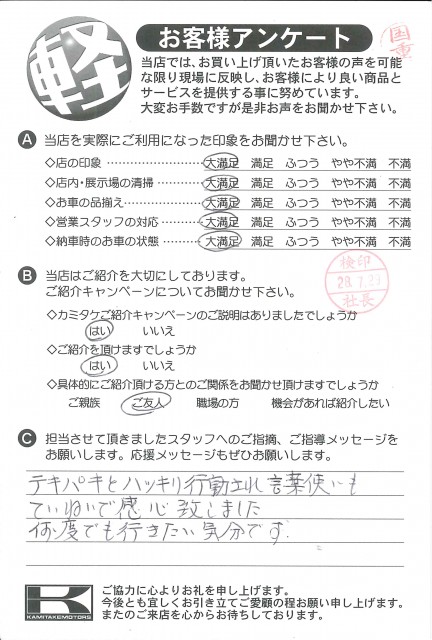 軽
お客様アンケート
当店では、お買い上げ頂いたお客様の声を可能
な限り現場に反映し、お客様により良い商品と
サービスを提供する事に努めています。
大変お手数ですが是非お声をお聞かせ下さい。
A 当店を実際にご利用になった印象をお聞かせ下さい。
◇店の印象 ………………… 大満足 満足 ふつう やや不満 不満
◇店内・展示場の清掃 ………… 大満足 満足 ふつう やや不満 不満
◇お車の品揃え ……………… 大満足 満足 ふつう やや不満 不満
◇営業スタッフの対応 ………… 大満足 満足 ふつう やや不満 不満
◇納車時のお車の状態 ………… 大満足 満足 ふつう やや不満 不満
B 当店はご紹介を大切にしております。
ご紹介キャンペーンについてお聞かせ下さい。
検印
28.7.23
社長
◇カミタケご紹介キャンペーンのご説明はありましたでしょうか
はい いいえ
◇ご紹介を頂けますでしょうか
はい いいえ
◇具体的にご紹介頂ける方とのご関係をお聞かせ頂けますでしょうか
ご親族 ご友人 職場の方 機会があれば紹介したい
C 担当させて頂きましたスタッフへのご指摘、ご指導メッセージを
お願いします。応援メッセージもぜひお願いします。
テキパキとハッキリ行動され 言葉使いも
ていねいで感心致しました
何度でも行きたい気分です.
K
KAMITAKEMOTORS
ご協力に心よりお礼を申し上げます。
今後とも宜しくお引き立てご愛顧の程お願い申し上げます。
またのご来店を心からお待ちしております。